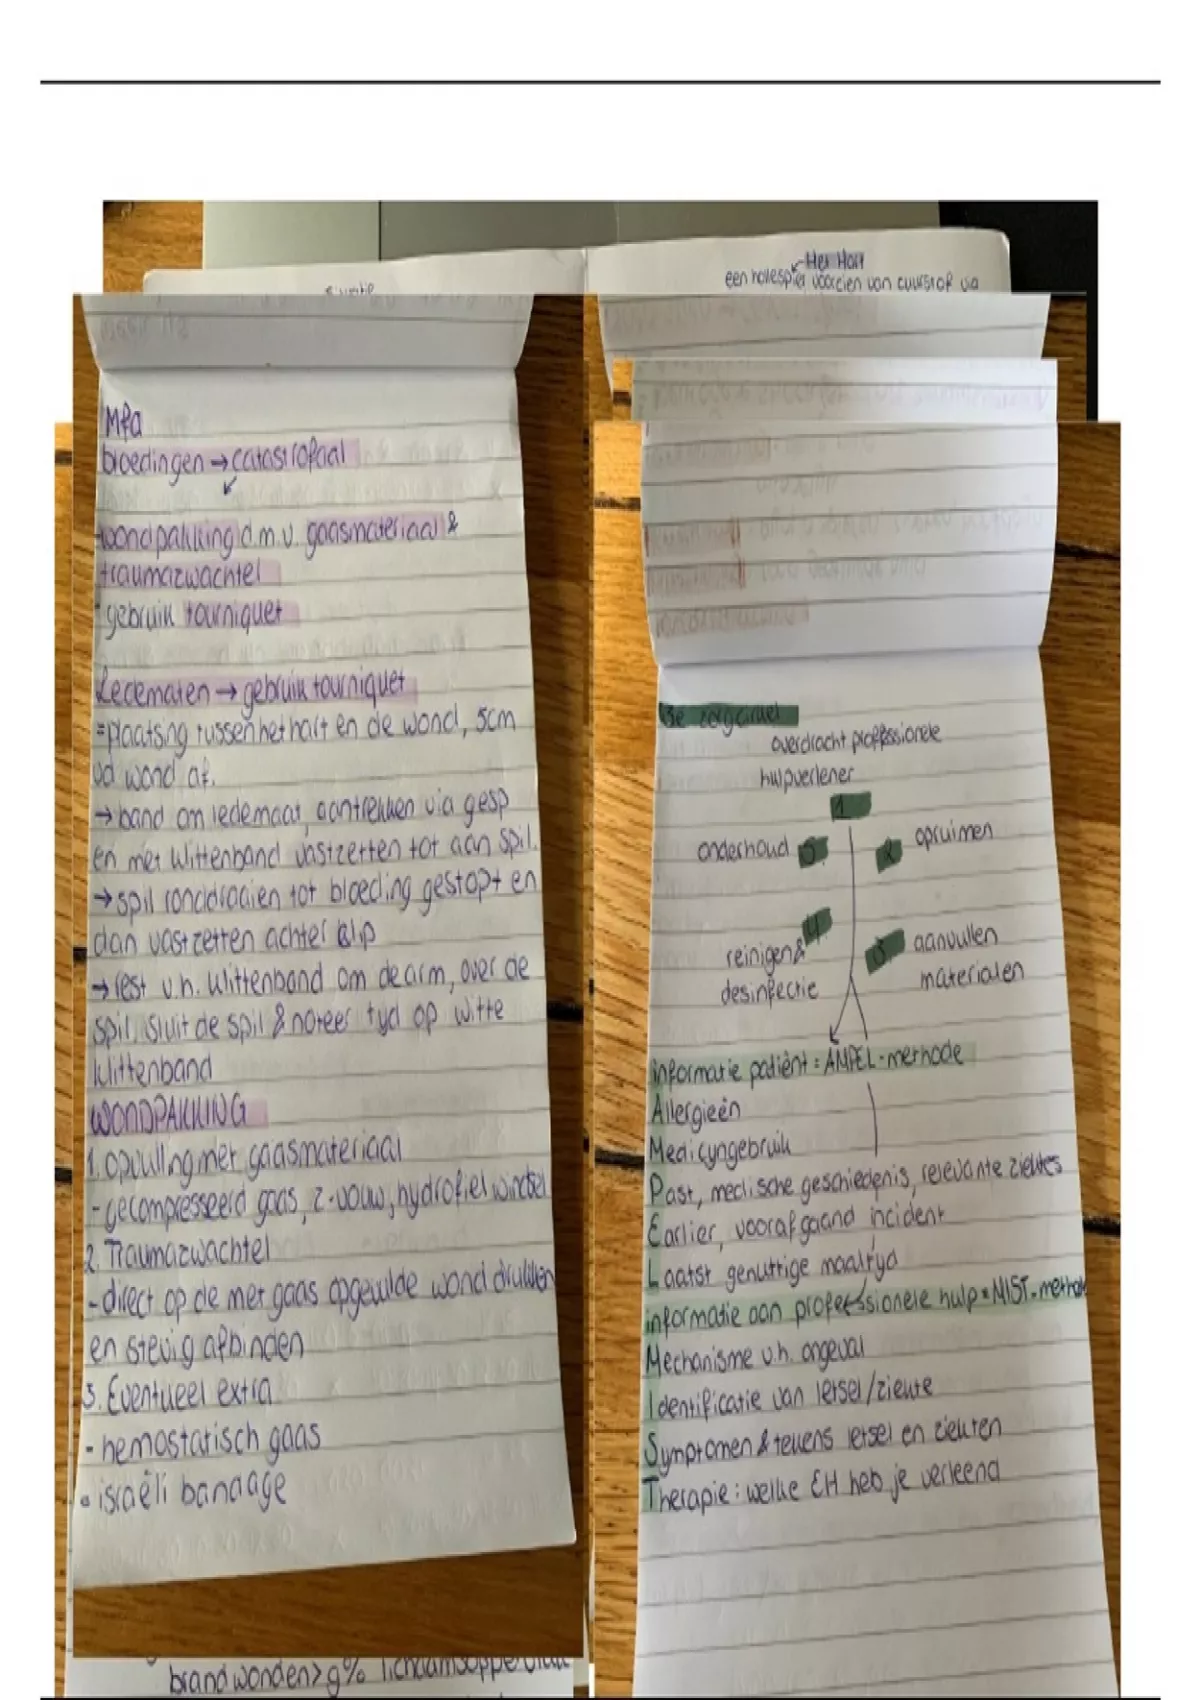 Het Hart
een hollespier voorzien van zuurstof via
Mfa
bloedingen → catastrofaal
wondpakking d.m.v. gaasmateriaal &
traumazwachtel
gebruik tourniquet
Ledematen → gebruik tourniquet
= plaatsing tussen het hart en de wond, 5cm
vd wond af.
→ band om ledemaat, aantrekken via gesp
en met klittenband vastzetten tot aan spil.
→ spil ronddraaien tot bloeding gestopt en
dan vastzetten achter klip
→ rest v.h. klittenband om de arm, over de
spil. Sluit de spil & noteer tijd op witte
klittenband
WONDPAKKING
1. opvulling met gaasmateriaal
- gecompresseerd gaas, z-vouw, hydrofiel windsel
2. Traumazwachtel
- direct op de met gaas opgevulde wond drukken
en stevig afbinden
3. Eventueel extra
- hemostatisch gaas
• israëli bandage
brandwonden > 9% lichaamsoppervlak
3e zorgcirkel
overdracht proffessionele
hulpverlener
1
onderhoud 5
2 opruimen
4
reinigen &
desinfectie
3 aanvullen
materialen
informatie patiënt = AMPEL-methode
Allergieën
Medicijngebruik
Past, medische geschiedenis, relevante ziektes
Earlier, voorafgaand incident
Laatst genuttige maaltijd
informatie aan professionele hulp = MIST-methode
Mechanisme v.h. ongeval
Identificatie van letsel/ziekte
Symptomen & tekens letsel en ziekten
Therapie: welke EH heb je verleend